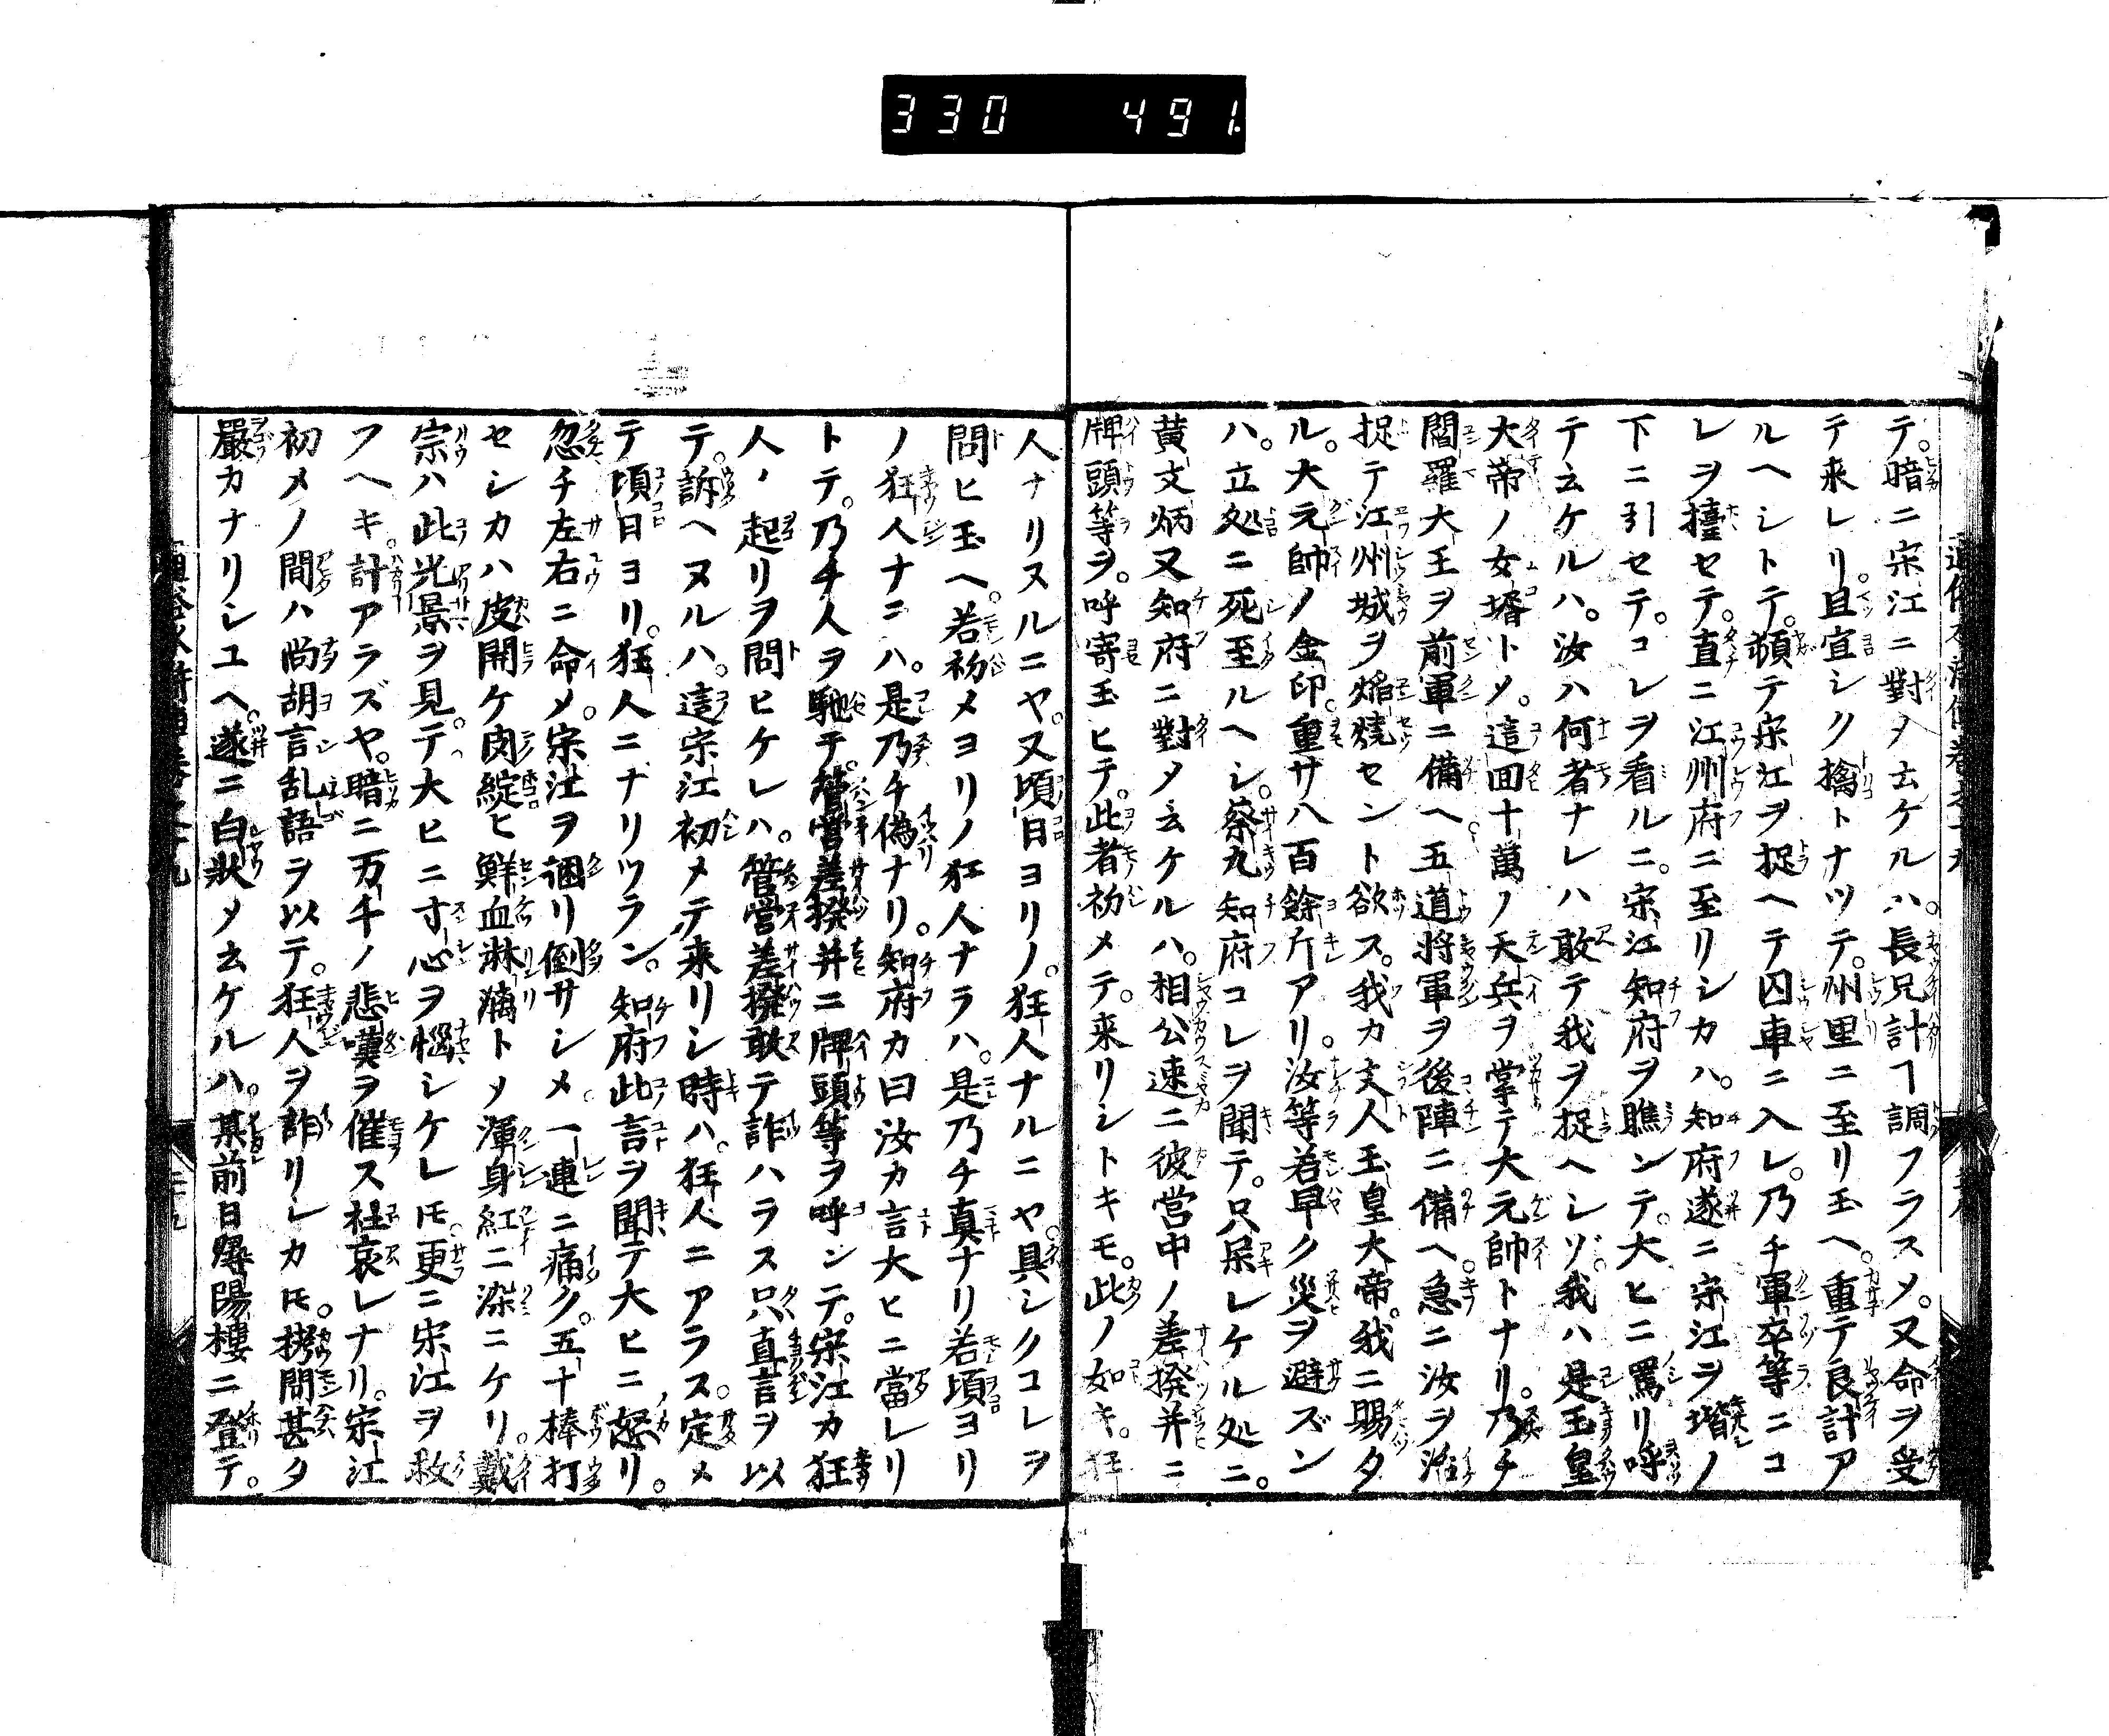 330 491
テ。暗ニ宋江ニ對メ云ケルハ。長兄計ヿ調フラスメ。又命ヲ受
テ来レリ。且宜シク擒トナツテ。州里ニ至リ玉ヘ。重テ良計ア
ルヘシトテ。頓テ宋江ヲ捉ヘテ囚車ニ入レ。乃チ軍卒等ニコ
レヲ擡セテ。直ニ江州府ニ至リシカハ。知府遂ニ宋江ヲ堦ノ
下ニ引セテ。コレヲ看ルニ。宋江知府ヲ瞧ンテ。大ヒニ罵リ呼
テ云ケルハ。汝ハ何者ナレハ敢テ我ヲ捉ヘシゾ。我ハ是玉皇
大帝ノ女壻トメ。這囬十萬ノ天兵ヲ掌テ大元帥トナリ。乃チ
閻羅大王ヲ前軍ニ備ヘ。五道将軍ヲ後陣ニ備ヘ。急ニ汝ヲ治
捉テ江州城ヲ焔燒セント欲ス。我カ丈人玉皇大帝。我ニ賜タ
ル。大元帥ノ金印。重サ八百餘斤アリ。汝等若早ク災ヲ避ズン
ハ。立処ニ死至ルヘシ。蔡九知府コレヲ聞テ。只呆レケル処ニ。
黄文炳又知府ニ對メ云ケルハ。相公速ニ彼営中ノ差撥并ニ
牌頭等ヲ。呼寄玉ヒテ。此者初メテ。来リシトキモ。此ノ如キ。狂
人ナリヌルニヤ。又頃日ヨリノ。狂人ナルニヤ。具シクコレヲ
問ヒ玉ヘ。若初メヨリノ狂人ナラハ。是乃チ真ナリ若頃ヨリ
ノ狂人ナニハ。是乃チ偽ナリ。知府カ曰汝カ言大ヒニ當レリ
トテ。乃チ人ヲ馳テ。管営差撥并ニ牌頭等ヲ呼ンテ。宋江カ狂
人ノ起リヲ問ヒケレハ。管営差撥敢テ詐ハラス只真言ヲ以
テ。訴ヘヌルハ。這宋江初メテ来リシ時ハ。狂人ニアラス。定メ
テ頃日ヨリ。狂人ニナリツラン。知府此言ヲ聞テ大ヒニ怒リ。
忽チ左右ニ命メ。宋江ヲ捆リ倒サシメ。一連ニ痛ク。五十棒打
セシカハ皮開ケ肉綻ヒ鮮血淋漓トメ渾身紅ニ染ニケリ。戴
宗ハ此光景ヲ見テ。大ヒニ寸心ヲ惱シケレ𪜈。更ニ宋江ヲ救
フヘキ。計アラズヤ。暗ニ万千ノ悲嘆ヲ催ス社哀レナリ。宋江
初メノ間ハ尚胡言乱語ヲ以テ。狂人ヲ詐リシカ𪜈。拷問甚タ
嚴カナリシユヘ。遂ニ白狀メ云ケルハ。某前日潯陽樓ニ登テ。